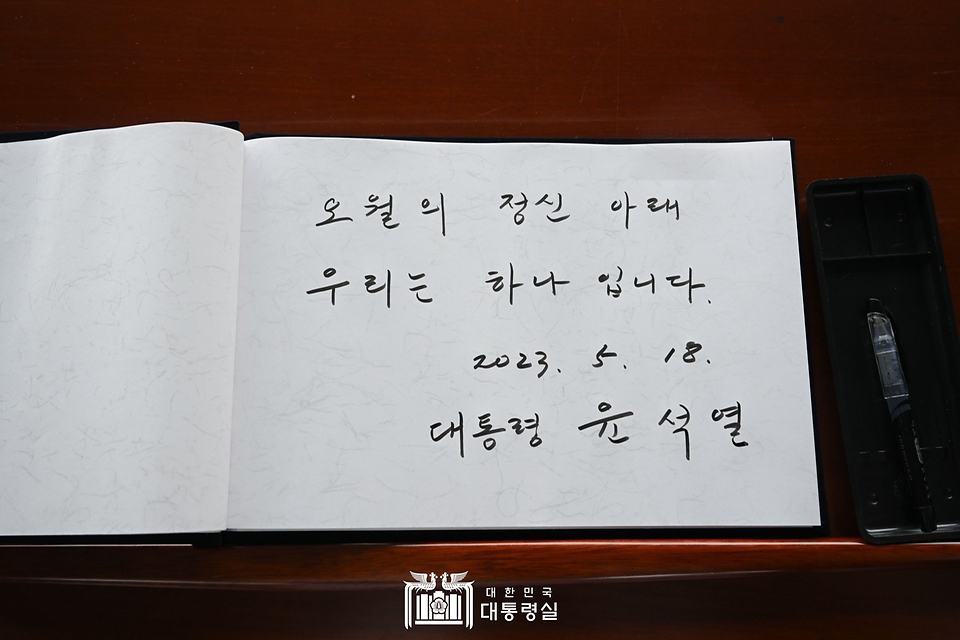 오월의 정신 아래
우리는 하나입니다.
2023. 5. 18.
대통령 윤석열
대한민국
대통령실